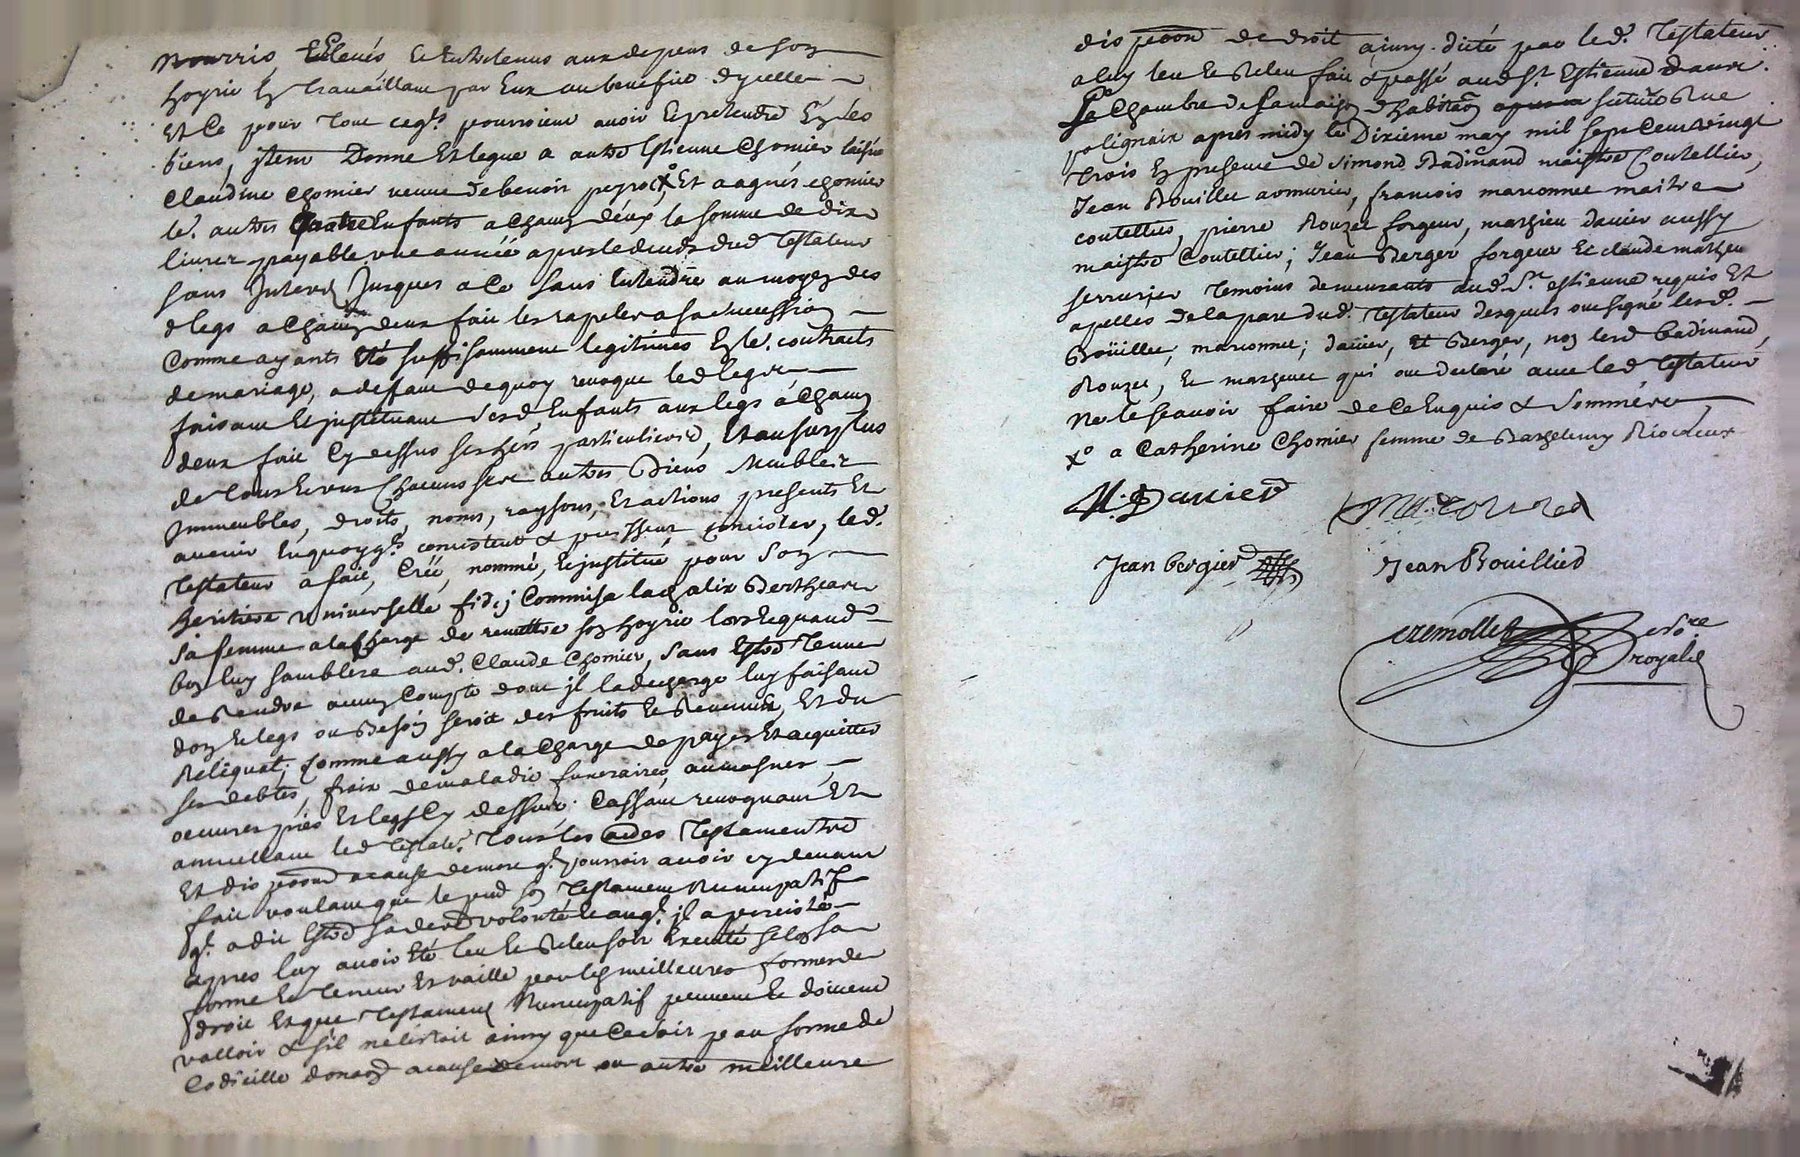 nourris Eslevés Et Entretenus aux depens de son
hoyrie En travaillant par Eux au benefice dycelle
Et Ce pour tout ce qls pourroient avoir Et pretendre En ses
biens, jtem Donne Et legue a autre Estienne Chomier
Claudine Chomier veuve de benoit peyro, x° Et a agnes chomier
aut. Enfants a chacun deux la somme de dix
livres payable une année apres le deceds dud testateur
sans Interes Jusques a Ce sans Entendre au moyen des
d legs a chacun deux fait les rapeler a sa sucession
Comme ayants Eté suffisamment legitimes En le. contracts
de mariage, a deffaut de quoy revoque led legs
faisant Et jnstituant sesd Enfants aux legs a chacun
deux fait Cy dessus ses hers particuliers, Et au surplus
de tous Et uns Chacuns ses autres Biens Meubles
Immeubles, droits, noms, raysons, Et actions presents Et
avenir En quoy qls consistent & puissent consister, led.
testateur a fait, Créé, nommé, Et jnstitué pour Son
heritiere Universelle fidej Commise
Sa femme a la charge de remettre son hoyrie lors Et quand
bon luy semblera aud. Claude Chomier, sans Estre tenue
de Rendre aucun Compte dont jl la decharge luy faisant
don Et legs ou Besoin seroit des fruits Et Revenus, Et du
Reliquat, Comme aussy a la Charge de payer Et acquitter
ses debtes, frais de maladie funeraires, aumosnes,
oeuvres pies Et legs Cy dessus. Cassant revoquant Et
annullant led testatr. tous les autres testaments
Et dispoon a cause de mort ql pourroit avoir cy devant
fait voulant que le pnt son testament Nuncupatif
ql a dit Estre sa dere volonté Et auql. jl a percisté
apres luy avoir Eté leu Et Releu soit Executé selon sa
forme Et teneur Et vaille par les meilleures formes de
droit Et que testament Nuncupatif peuvent Et doivent
valloir & sil ne lestoit ainsy que Ce soit par forme de
Codicille donaon a cause de mort ou autre meilleure
dispoon de droit ainsy dicté par led. testateur
a luy leu Et Releu fait & passé aud St Estienne dans
la Chambre de sa maison dhabitaon scituée Rue
polignaix apres midy le Dixieme may mil sept Cent vingt
trois En presence de simond Badinand maistre Coutellier,
Jean Bouillet armurier, francois marconnet maitre
coutellier, pierre Rouzet forgeur, mathieu davier aussy
maistre Coutellier; Jean Berger forgeur Et claude mathieu
serrurier temoins demeurants aud. St. estienne requis Et
apelles de la part dud. testateur desquels ont signé lesd.
Boüillet, marconnet; davier, Et Berger, non lesd badinand,
Rouzet, Et mathieu qui ont declaré avec led testateur
ne le sçavoir faire de Ce Enquis & Sommés
x° a Catherine Chomier femme de Barthelemy Riocreux
M. Davier
Marconet
Jean bergier
Jean Bouillied
royal